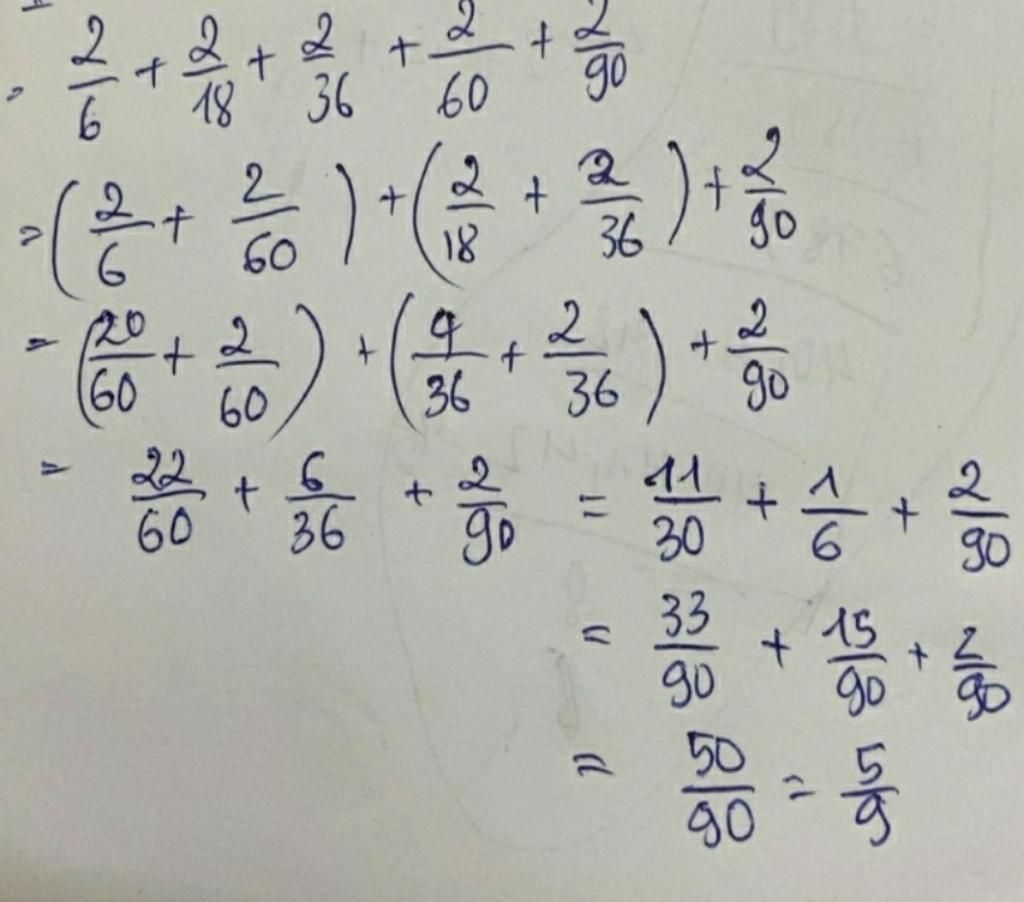 = 2/6 + 2/18 + 2/36 + 2/60 + 2/90
= (2/6 + 2/60) + (2/18 + 2/36) + 2/90
= (20/60 + 2/60) + (4/36 + 2/36) + 2/90
= 22/60 + 6/36 + 2/90 = 11/30 + 1/6 + 2/90
= 33/90 + 15/90 + 2/90
= 50/90 = 5/9